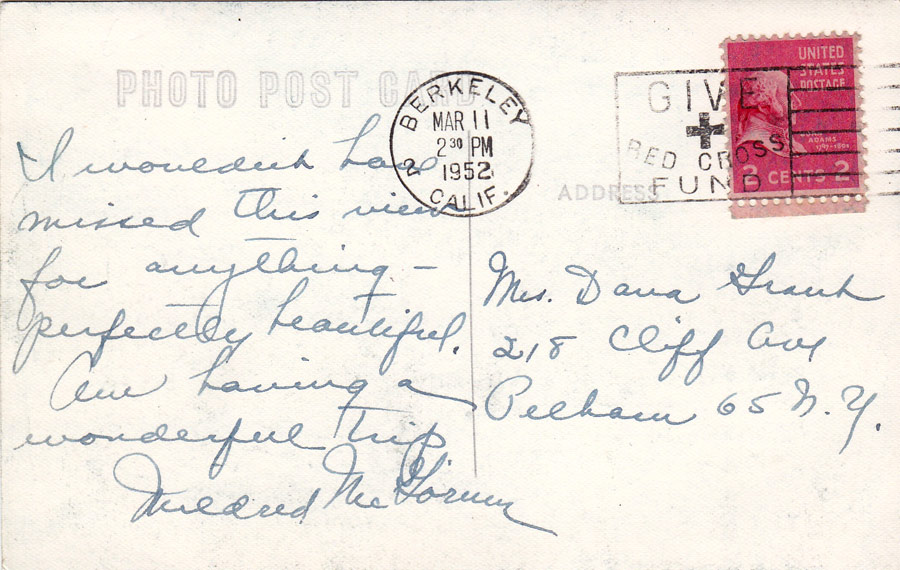 PHOTO POST CARD
BERKELEY
MAR 11
2 30 PM
1952
2 CALIF.
GIVE
RED CROSS
FUND
UNITED
STATES
POSTAGE
JOHN
ADAMS
1797-1801
2 CENTS 2
ADDRESS
I wouldn't have
missed this view
for anything –
perfectly beautiful.
Am having a
wonderful trip
Mildred
Mrs. Dana Grant
218 Cliff Ave
Pelham 65 N.Y.